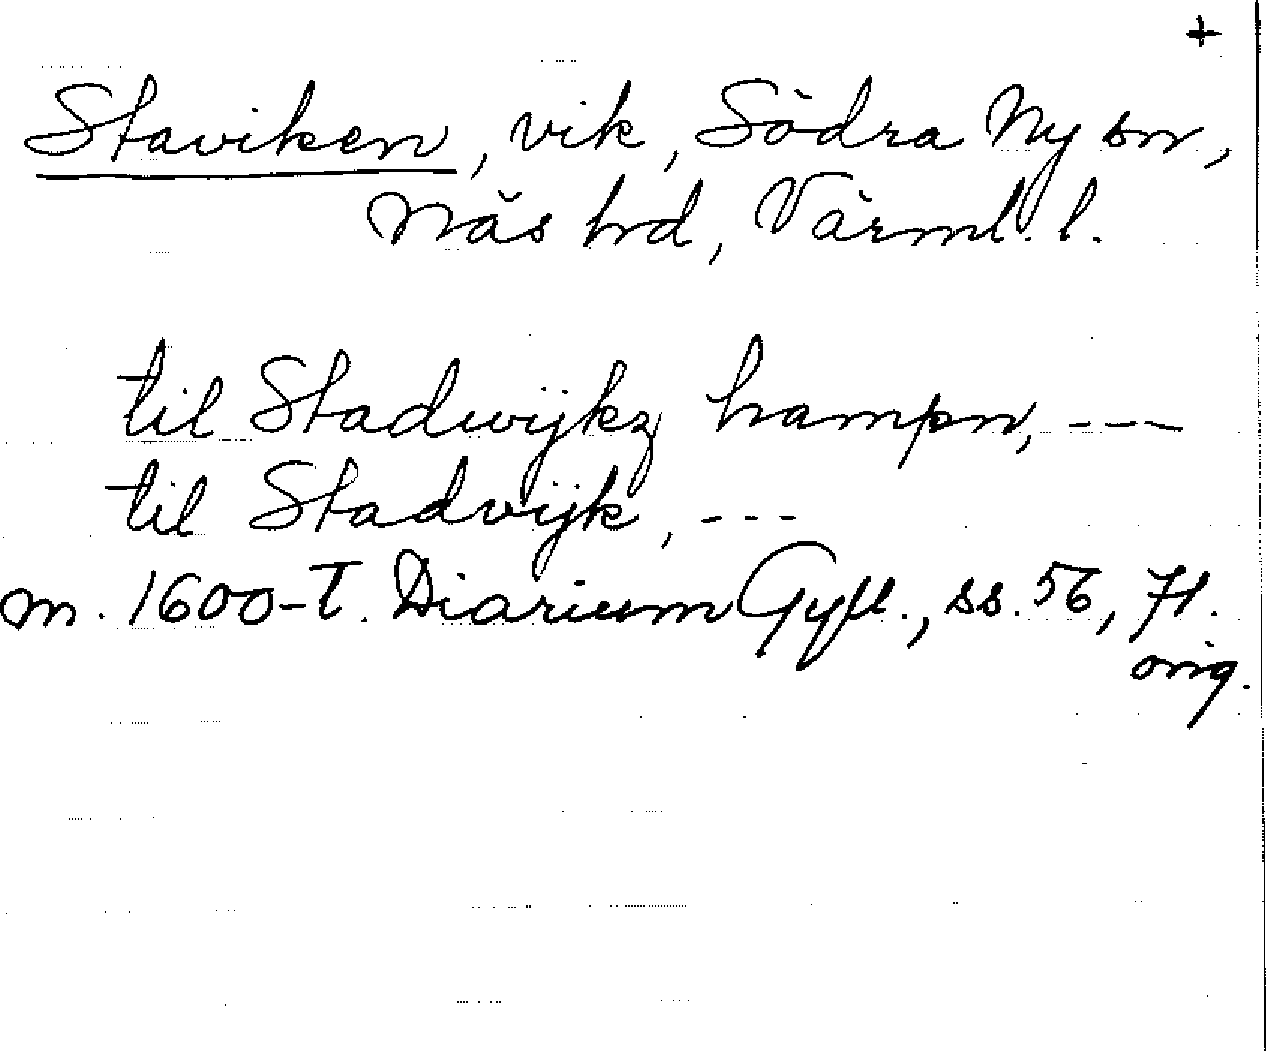 +
Staviken, vik, Södra Ny sn,
Näs hd, Värml. l.
til Stadwijkz hampn, ---
til Stadvijk, ---
m. 1600-T. Diarium Gyll., ss. 56, 71.
orig.